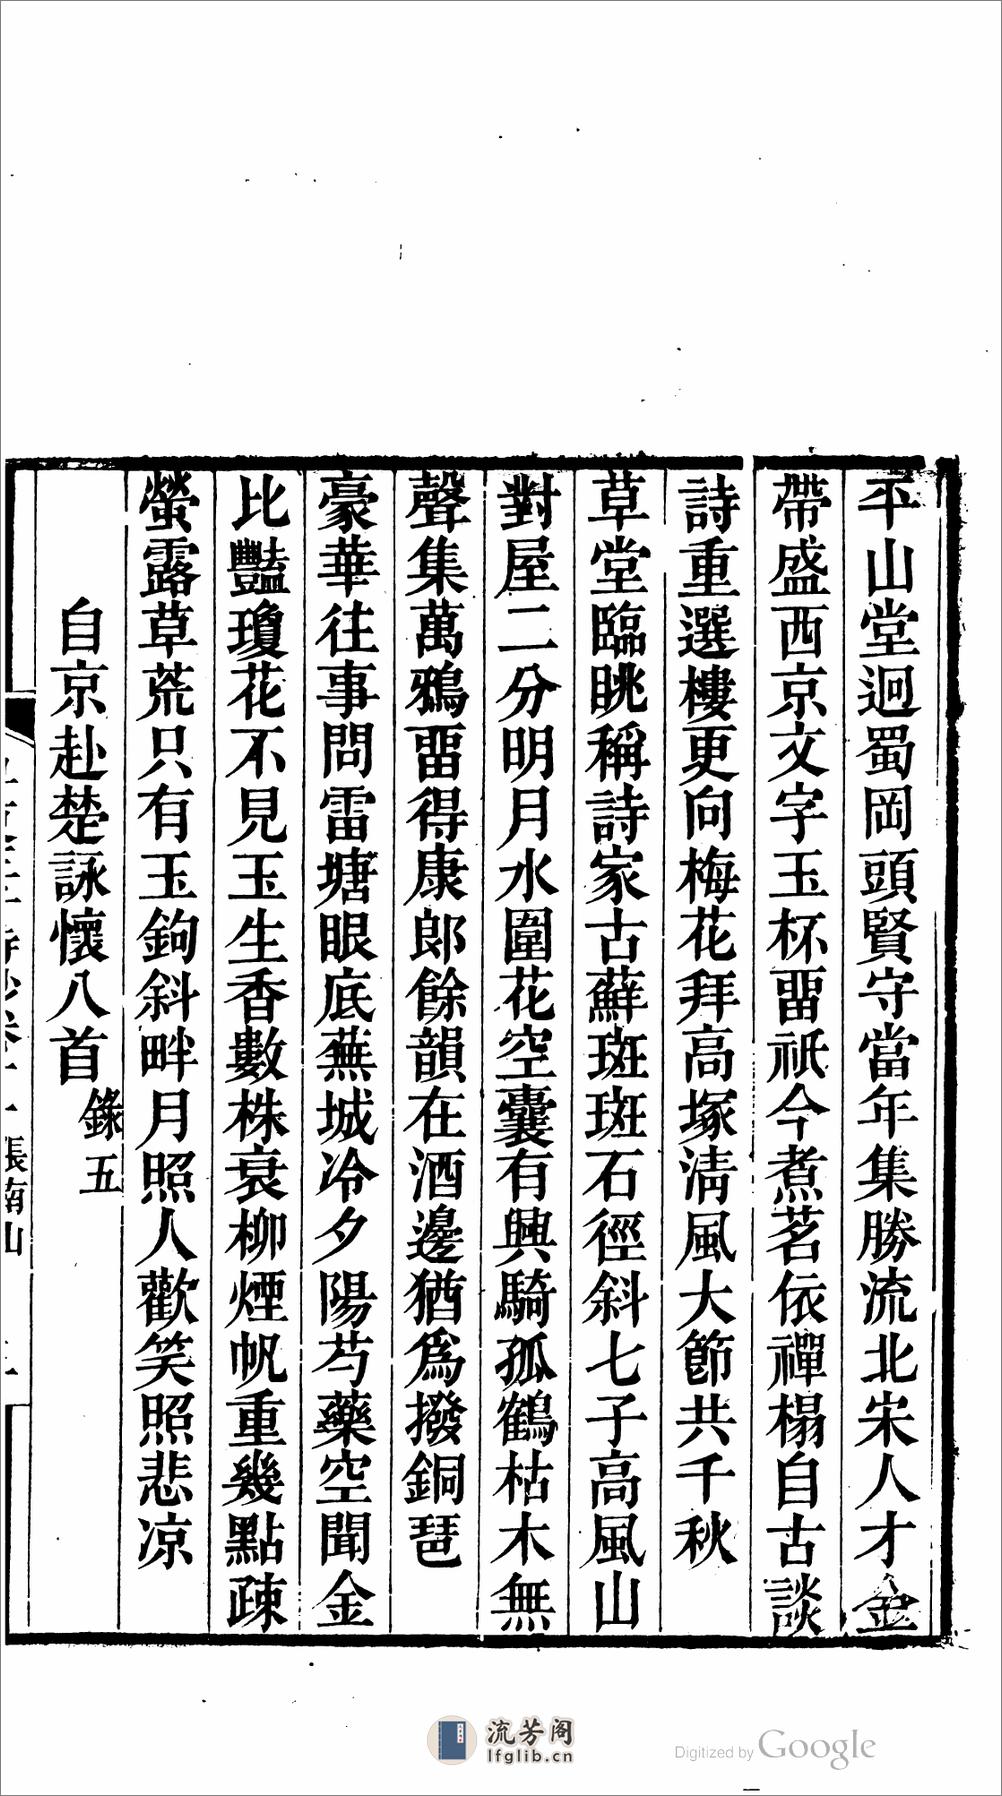 平山堂迥蜀岡頭賢守當年集勝流北宋人才金
帶盛西京文字玉杯畱祇今煮茗依禪榻自古談
詩重選樓更向梅花拜高塚淸風大節共千秋
草堂臨眺稱詩家古蘚斑斑石徑斜七子高風山
對屋二分明月水圍花空囊有興騎孤鶴枯木無
聲集萬鴉畱得康郞餘韻在酒邊猶爲撥銅琶
豪華往事問雷塘眼底蕪城冷夕陽芍藥空聞金
比豔瓊花不見玉生香數株衰柳煙帆重幾點疎
螢露草荒只有玉鉤斜畔月照人歡笑照悲凉
自京赴楚詠懷八首 錄五
張南山
流芳阁
lfglib.cn
Digitized by Google